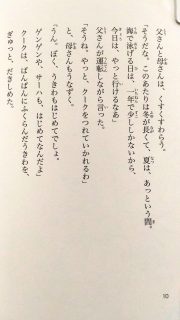 父さんと母さんは、くすくすわらう。
「そうだな。このあたりは冬が長くて、夏は、あっという間。
海で泳げる日は、一年で少ししかないから、
今日は、やっと行けるなあ」
父さんが運転しながら言った。
「そうね。やっと、クークをつれていかれるわ」
と、母さんもうなずく。
「うん。ぼく、うきわもはじめてでしょ。
ゲンゲンや、サーハも、はじめてなんだよ」
クークは、ぱんぱんにふくらんだうきわを、
ぎゅっと、だきしめた。
10